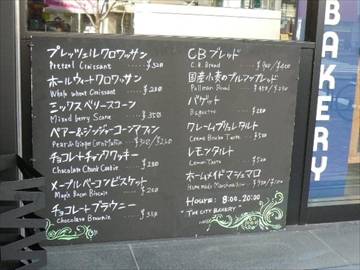 プレッツェルクロワッサン
Pretzel Croissant ¥320
ホールウィートクロワッサン
Whole wheat Croissant
ミックスベリースコーン
Mixed berry Scone ¥350
ペアー&ジンジャーコーンマフィン
Pear & Ginger Corn Muffin
チョコレートチャンククッキー
Chocolate Chunk Cookie
メープルベーコンビスケット
Maple Bacon Biscuit
チョコレートブラウニー
Chocolate Brownie
CBブレッド
C.B. Bread
国産小麦のプルマンブレッド
Pullman Bread
バゲット
Baguette
クレームブリュレタルト
Creme Brulee Tarte ¥500
レモンタルト
Lemon Tarte ¥500
ホームメイドマシュマロ
Homemade Marshmallow
Hours: 8:00-20:00
"THE CITY BAKERY"
BAKERY